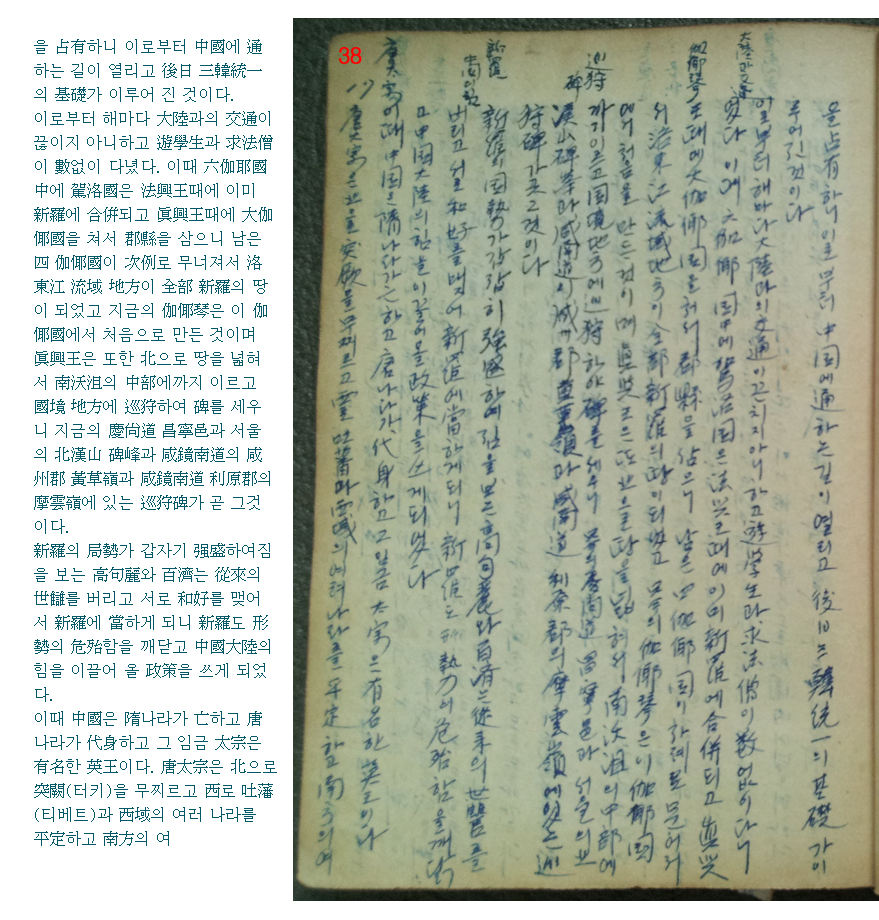 을 占有하니 이로부터 中國에 通
하는 길이 열리고 後日 三韓統一
의 基礎가 이루어 진 것이다.
이로부터 해마다 大陸과의 交通이
끊이지 아니하고 遊學生과 求法僧
이 數없이 다녔다. 이때 六伽耶國
中에 駕洛國은 法興王때에 이미
新羅에 合倂되고 眞興王때에 大伽
倻國을 쳐서 郡縣을 삼으니 남은
四 伽倻國이 次例로 무너져서 洛
東江 流域 地方이 全部 新羅의 땅
이 되었고 지금의 伽倻琴은 이 伽
倻國에서 처음으로 만든 것이며
眞興王은 또한 北으로 땅을 넓혀
서 南沃沮의 中部에까지 이르고
國境 地方에 巡狩하여 碑를 세우
니 지금의 慶尙道 昌寧邑과 서울
의 北漢山 碑峰과 咸鏡南道의 咸
州郡 黃草嶺과 咸鏡南道 利原郡의
摩雲嶺에 있는 巡狩碑가 곧 그것
이다.
新羅의 局勢가 갑자기 强盛하여짐
을 보는 高句麗와 百濟는 從來의
世讎를 버리고 서로 和好를 맺어
서 新羅에 當하게 되니 新羅도 形
勢의 危殆함을 깨닫고 中國大陸의
힘을 이끌어 올 政策을 쓰게 되었
다.
이때 中國은 隋나라가 亡하고 唐
나라가 代身하고 그 임금 太宗은
有名한 英王이다. 唐太宗은 北으로
突闕(터키)을 무찌르고 西로 吐藩
(티베트)과 西域의 여러 나라를
平定하고 南方의 여
38
을 占有하니 이로부터 中国에 通하는 길이 열리고 後日 三韓統一의 基礎가 이
루어진 것이다
일로부터 해마다 大陸과의 交通이 끈치지 아니하고 遊學生과 求法僧이 數없이 다니
엿다 이때 六伽倻国中에 駕洛国은 法兴王때에 이미 新羅에 合倂되고 眞兴
伽倻琴
王때에 大伽倻国을 처서 郡縣을 삼으니 남은 四伽倻国이 차례로 문허저
서 洛東江 流域地方이 全部 新羅의 땅이 되였고 의 伽倻琴은 이 伽倻国
에서 처음을 만든 것이며 眞兴王은 또 北을 땅을 넓혀서 南沃沮의 中部에
巡狩碑
까지 이르고 国境地方에 巡狩하야 碑를 세우니 昌寧邑과 서울의 北
漢山碑峯과 咸南道의 咸州郡 黃草嶺과 咸南道 利原郡의 摩雲嶺에 있는 巡
狩碑가 곧 그것이다
新羅의 国勢가 갑작히 強盛하여짐을 보는 高句麗와 百済는 從来의 世讐를
버리고 서로 和好를 맺어 新羅에 當하게 되니 新羅도 勢의 危殆함을 깨닷
고 中国大陸의 힘을 이끌어 올 政策을 쓰게 되엿다
唐太宗
이때 中国은 隋나라가 亡하고 唐나라가 代身하고 그 임금 太宗은 有名한 英王이다
唐太宗은 北으로 突厥을 무찌르고 吐蕃과 西域의 여러 나라를 平定하고 南方의 여